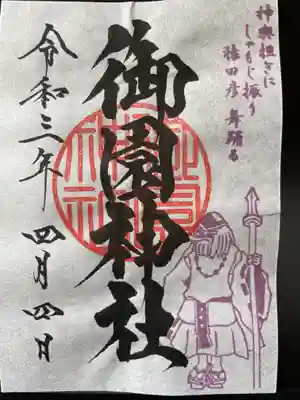 神輿担ぎに
しゃもじ振り
猿田彦舞踊る
御園神社
令和三年四月四日